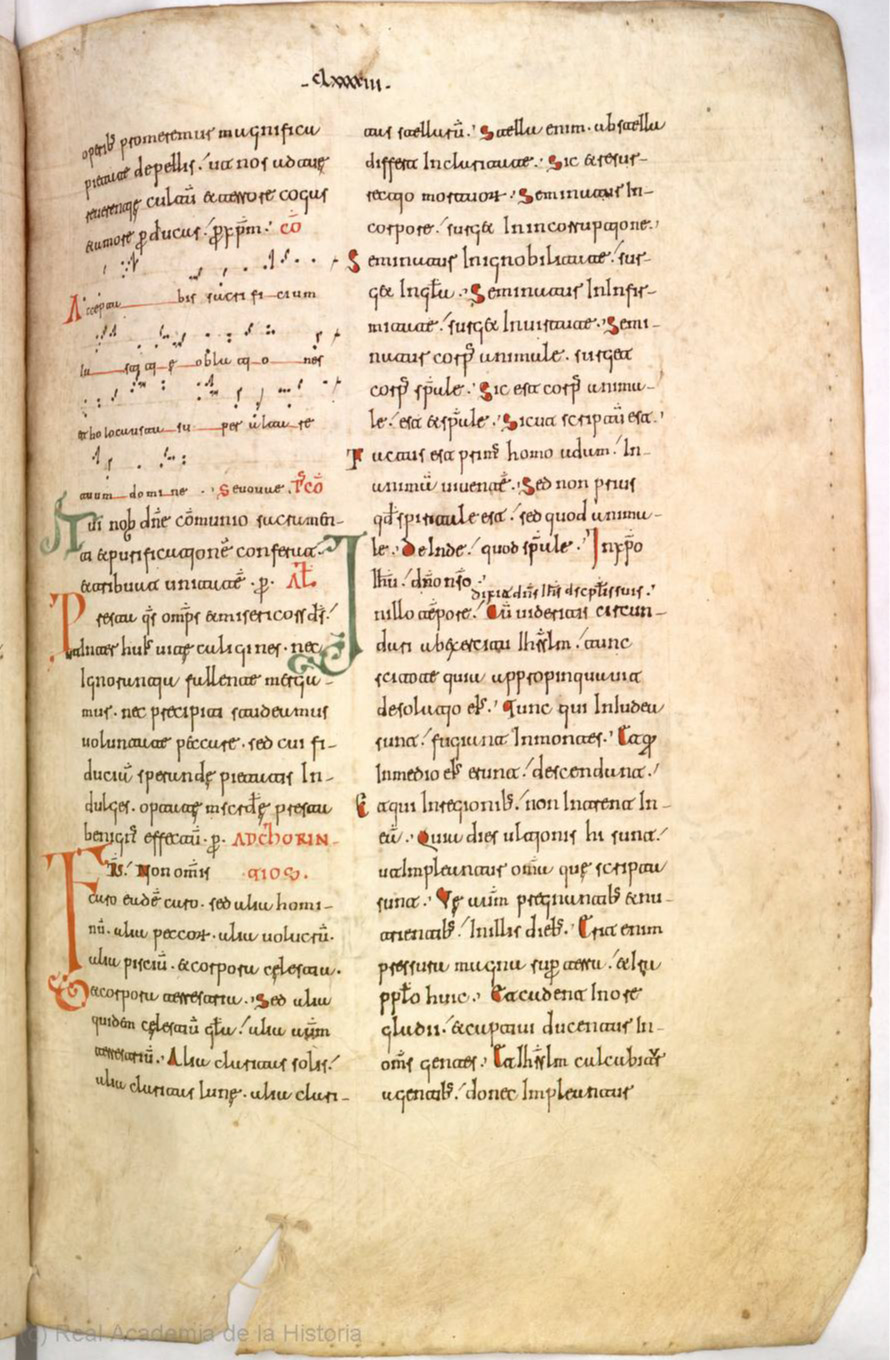 ·clxxxiii·
operib; promeremur magnifica
pietate depellis. ut nos ad tuę
reuerentię cultū & terrore cogas
& amore ꝑducas. ꝑ xp̄m. cō
Acceptabis sacrificium
iustitię oblationes
& holocausta super altare
tuum domine. Seuouae. p̄ cō
Tui nob̄ dn̄e cōmunio sacramen-
ta & purificationē conferat.
& tribuat unitatē. ꝑ. Al̄
Presta qs̄ omp̄s & misericors ds̄.
ut inter huius uitę caligines. nec
Ignorantia fallente merga-
mur. nec precipiti studeamus
uoluntate peccare. sed cui fi-
duciā sperandę pietatis In-
dulges. optatę miscd̄ę presta
benign; effectū. ꝑ. AD CHORIN-
FRS. Non omnis TIOS.
caro eadē caro. sed alia homi-
nū. alia peccor̄. alia uolucrū.
alia pisciū. & corpora cęlestia.
& corpora terrestria. Sed alia
quidem cęlestiū gl̄a. alia aūm
terrestriū. Alia claritas solis.
alia claritas lunę. alia clari-
tas stellarū. Stella enim. ab stella
differt In claritate. Sic & resur-
rectio mortuor̄. Seminatur In
corpore. surget In incorruptione.
Seminatur In ignobilitate. sur-
get In gl̄a. Seminatur In Infir-
mitate. surget In uirtute. Semi-
natur corp; animale. surget
corp; sp̄ale. Sic est corp; anima-
le. est & sp̄ale. Sicut scriptū est.
Factus est prim; homo adam. In
animā uiuentē. Sed non prius
qd̄ spiritale est. sed quod anima-
le. deInde. quod sp̄ale. In xp̄o
Ih̄u. dn̄o nr̄o.
dixit dn̄s Ih̄s discpl̄is suis.
In illo tēpore. Cū uideritis circun-
dari ab exercitu Ih̄rlm. tunc
scitote quia appropinquauit
desolatio ei;. Tunc qui In Iudea
sunt. fugiunt In montes. Et q̄
In medio ei; erunt. descendant.
Et qui In regionib;. non Intrent In
eā. Quia dies ultionis hi sunt.
ut Impleantur omnia quę scripta
sunt. Vę aūm pregnantib; & nu-
trientib;. In illis dieb;. Erit enim
pressura magna sup̄ terra. & Ira
ppl̄o huic. Et cadent In ore
gladii. & captiui ducentur In
oms̄ gentes. Et Ih̄rlm calcabitr̄
a gentib;. donec Impleantur
(c) Real Academia de la Historia